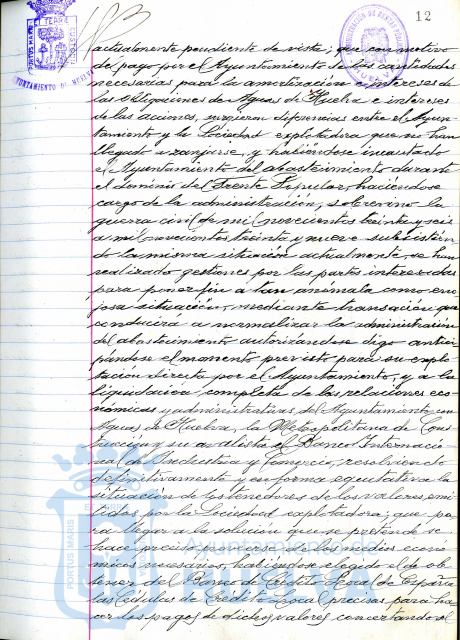 12
actualmente pendiente de vista; que con motivo
del pago por el Ayuntamiento de las cantidades
necesarias para la amortización e intereses de
las obligaciones de Aguas de Huelva e intereses
de las acciones, surgieron diferencias entre el Ayun-
tamiento y la Sociedad explotadora que no han
llegado a zanjarse, y habiéndose incautado
el Ayuntamiento del abastecimiento durante
el dominio del Frente Popular, haciéndose
cargo de la administración, sobrevino la
guerra civil de mil novecientos treinta y seis
a mil novecientos treinta y nueve subsistien-
do la misma situación actualmente, se han
realizado gestiones por las partes interesadas
para poner fin a tan anómala como eno-
josa situación, mediante transación que
conducira a normatizar la administración
del abastecimiento autorizandose digo antici-
pándose el momento previsto para su explo-
tación directa por el Ayuntamiento, y a la
liquidación completa de las relaciones eco-
nómicas y administrativas del Ayuntamiento con
Aguas de Huelva, la Metropolitana de Cons-
trucción y su avalista el Banco Internacio-
nal de Industria y Comercio, resolviendo
definitivamente y en forma equitativa la
situacion de los tenedores de los valores emi-
tidos por la Sociedad explotadora; que pa-
ra llegar a la solución que se pretende se
hace preciso proveerse de los medios econó-
micos necesarios, habiéndose elegido el de ob-
tener del Banco de Crédito Local de España
las Cédulas de Crédito Local precisas para ha-
cer los pagos de dichos valores concertando el
PORTUS MARIS
AYUNTAMIENTO DE HUELVA
Ayuntamiento de
HUELVA
PORTUS MARIS